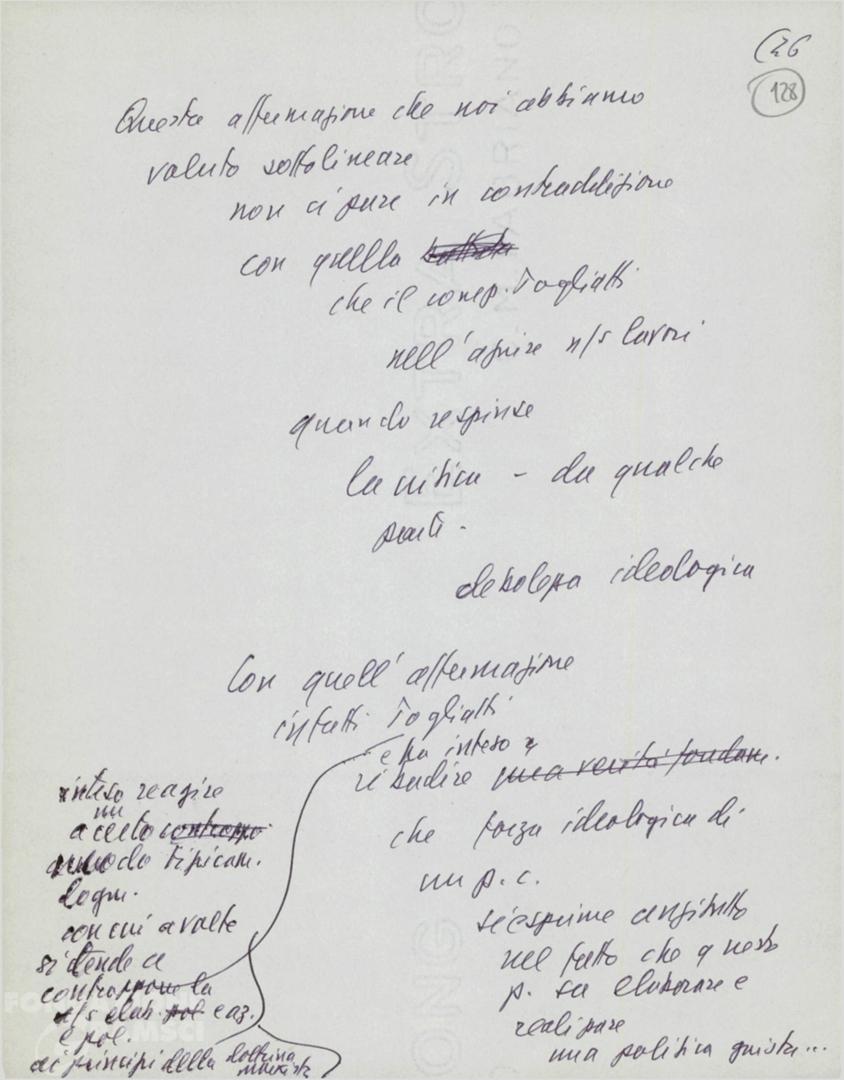 (26
128
Questa affermazione che noi abbiamo
voluto sottolineare
non ci pare in contraddizione
con quella
che il comp. Togliatti
nell'aprire n/s lavori
quando respinse
la critica - da qualche
parte -
debolezza ideologica
Con quell'affermazione
infatti Togliatti
e ha inteso
ribadire una verità fondam.
che forza ideologica di
un p.c.
si esprime anzitutto
nel fatto che questo
p. sa elaborare e
realizzare
una politica giusta...
inteso reagire
a un certo
modo tipicam.
dogm.
con cui a volte
si tende a
contrapporre la
n/s elab. pol. e az.
e pol.
ai principi della dottrina
marxista